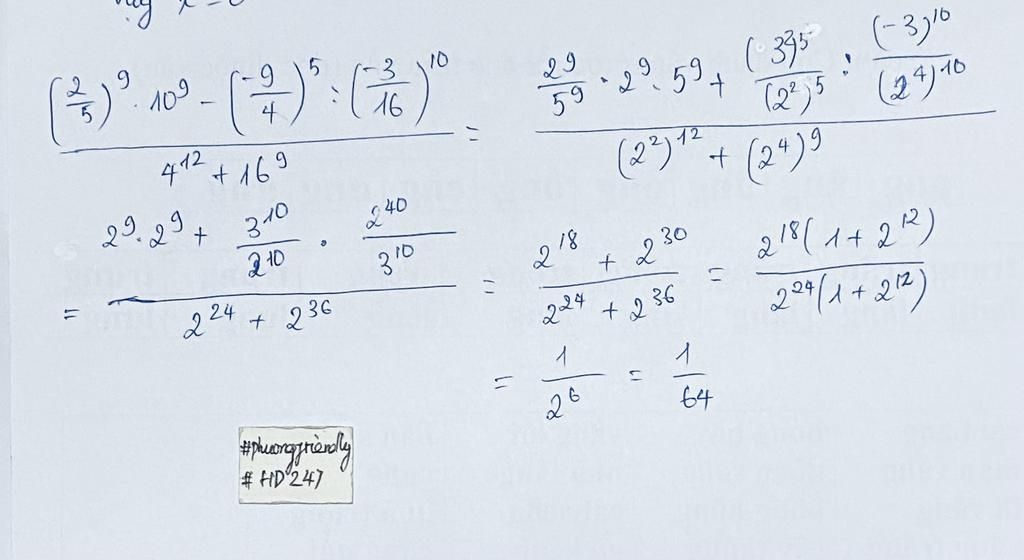 (2/5)^9 · 10^9 - (-9/4)^5 : (-3/16)^10 / 4^12 + 16^9 = 2^9/5^9 · 2^9 · 5^9 + (3^2)^5/(2^2)^5 : (-3)^10/(2^4)^10 / (2^2)^12 + (2^4)^9
= 2^9 · 2^9 + 3^10/2^10 · 2^40/3^10 / 2^24 + 2^36 = 2^18 + 2^30 / 2^24 + 2^36 = 2^18(1 + 2^12) / 2^24(1 + 2^12)
= 1/2^6 = 1/64
#phuongfriendly
#HD247